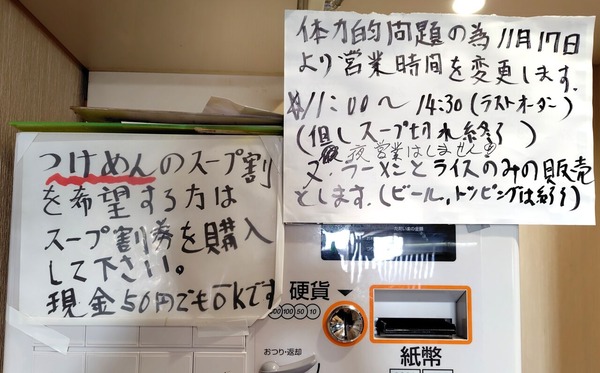 体力的問題の為11月17日
より営業時間を変更します.
11:00〜14:30(ラストオーダー)
(但しスープ切れ終了)
夜営業はしません
又ラーメンとライスのみの販売
とします.(ビール,トッピングは終了)
つけめんのスープ割
を希望する方は
スープ割券を購入
して下さい。
現金50円でもOKです
硬貨
100 50 10
おつり・返却
紙幣